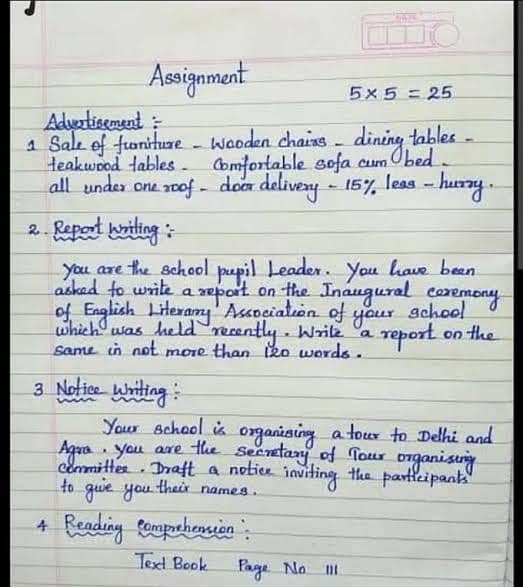 DATE
Assignment
5 x 5 = 25
Advertisement :-
1 Sale of furniture - Wooden chairs - dining tables -
teakwood tables - Comfortable sofa cum bed -
all under one roof - door delivery - 15% less - hurry.
2. Report Writing :-
You are the school pupil Leader. You have been
asked to write a report on the Inaugural ceremony
of English Literary Association of your school
which was held recently. Write a report on the
same in not more than 120 words.
3 Notice Writing :
Your school is organising a tour to Delhi and
Agra. You are the Secretary of Tour organising
committee. Draft a notice inviting the participants
to give you their names.
4 Reading Comprehension :
Text Book Page No 111